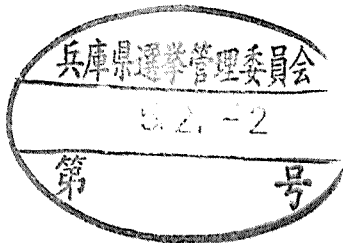 兵庫県選挙管理委員会
5.2.-2
第 号